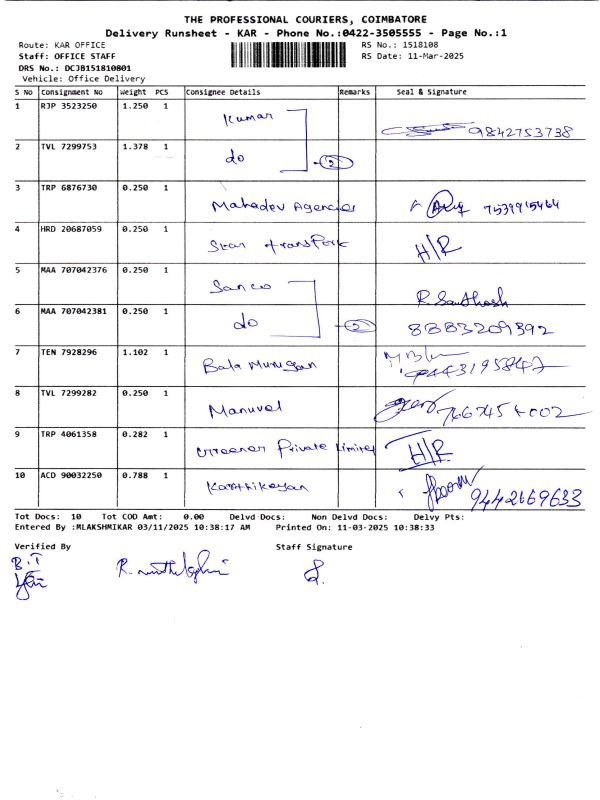 THE PROFESSIONAL COURIERS, COIMBATORE
Delivery Runsheet - KAR - Phone No.:0422-3505555 - Page No.:1
Route: KAR OFFICE RS No.: 1518108
Staff: OFFICE STAFF RS Date: 11-Mar-2025
DRS No.: DCJB151810801
Vehicle: Office Delivery
S No Consignment No Weight PCS Consignee Details Remarks Seal & Signature
1 RJP 3523250 1.250 1 Kumar 9842753738
2 TVL 7299753 1.378 1 do 2
3 TRP 6876730 0.250 1 Mahadev Agencies 7539915464
4 HRD 20687059 0.250 1 Star H/R
5 MAA 707042376 0.250 1 Sanco R. Santhosh
6 MAA 707042381 0.250 1 do 2 8883209392
7 TEN 7928296 1.102 1 Bala Murugan
8 TVL 7299282 0.250 1 Manuvel
9 TRP 4061358 0.282 1 Private Limited H/R
10 ACD 90032250 0.788 1 Karthikeyan 9442169633
Tot Docs: 10 Tot COD Amt: 0.00 Delvd Docs: Non Delvd Docs: Delvy Pts:
Entered By :MLAKSHMIKAR 03/11/2025 10:38:17 AM Printed On: 11-03-2025 10:38:33
Verified By Staff Signature